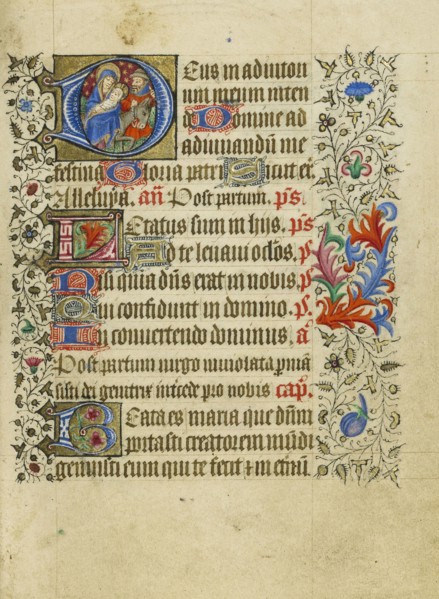 Deus in adiutori
um meum inten
de Domine ad
adiuuandū me
festina Gloria patri Sicut er̄
Alleluya. an̄ Post partum. p̄s
Letatus sum in hijs. p̄s
Ad te leuaui oc̄los, p̄
Nisi quia dn̄s erat in nobis, p̄
Qui confidunt in domino. p̄s
In conuertendo dominus. a
Post partum uirgo inuiolata p̄mā
sisti dei genitrix intēcede pro nobis cap̄.
Beata es maria que dn̄m
portasti creatorem mūdi
genuisti eum qui te fecit ⁊ in et̄nū